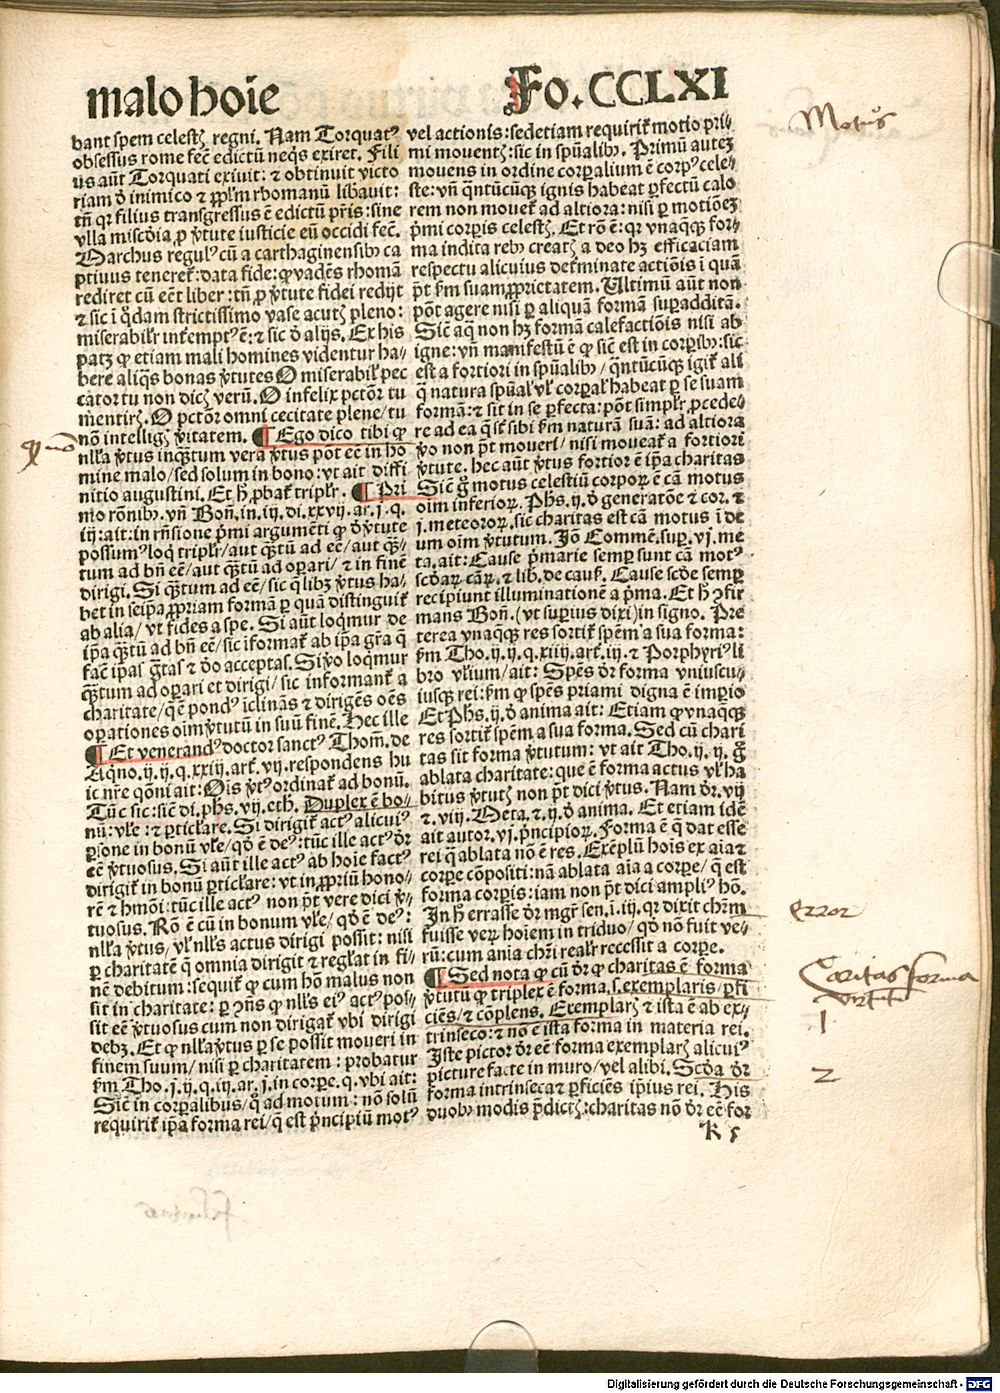 malo hoīe
Fo. CCLXI
bant spem celestꝭ regni. Nam Torquatꝰ
obsessus rome fec̄ edictū neqꝫ exiret. Fili
us aūt Torquati exiuit: ⁊ obtinuit victo
riam ḋ inimico ⁊ ꝓpl̄m rhomanū libauit:
tn̄ qꝛ filius transgressus ē edictū pr̄is: sine
vlla misc̄dia, ꝓ v̓tute iusticie eū occidi fec̄.
Marchus regulꝰ cū a carthaginensibꝫ ca
ptiuus tenereť: data fide: ꝙ vadēs rhomā
rediret cū eēt liber: tn̄ ꝓ v̓tute fidei redijt
⁊ sic ī q̇dam strictissimo vase acutꝭ pleno:
miserabilr̄ inťemptꝰ ē: ⁊ sic ḋ alijs. Ex his
patꝫ ꝙ etiam mali homines videntur ha/
bere aliq̄s bonas v̓tutes O miserabil̓ pec
cator tu non dicꝭ verū. O infelix pctōr tu
mentirꝭ. O pctōr omni cecitate plene/ tu
nō intelligꝭ v̓itatem. ¶ Ego dico tibi ꝙ
nlla v̓tus inqꝫtum vera v̓tus pōt eē in ho
mine malo/ sed solum in bono: vt ait diffi
nitio augustini. Et h̓ ꝓbať triplr̄. ¶ Pri
mo rōnibꝫ. vn̄ Bon̄. in. iij. di. xxvij. ar. j. q.
iij: ait: in rn̄sione p̓mi argumēti ꝙ ḋ v̓tute
possumꝰ loq̇ triplr̄/ aut qꝫtū ad eē/ aut qꝫ/
tum ad bn̄ eē/ aut qꝫtū ad oꝑari/ ⁊ in finē
dirigi. Si qꝫtum ad eē/ sic q̄libꝫ v̓tus ha/
bet in seip̄a ꝓpriam formā ꝑ quā distinguiť
ab alia/ vt fides a spe. Si aūt loq̇mur de
ip̄a qꝫtū ad bn̄ eē/ sic īformať ab ip̄a gr̄a q̄
fac̄ ip̄as gr̄tas ⁊ ḋo acceptas. Si v̓o loq̇mur
qꝫtum ad oꝑari et dirigi/ sic informanť a
charitate/ q̄ ē pondꝰ īclinās ⁊ dirigēs oēs
oꝑationes oīm v̓tutū in suū finē. Hec ille
¶ Et venerandꝰ doctor sanctꝰ Thom̄. de
Aq̇no. ij. ij. q. xxiij. art̓. vij. respondens hu
ic nr̄e qōni ait: Oīs v̓tꝰ ordinať ad bonū.
Tūc sic: sic̄ di. ph̄s. vij. eth̓. Duplex ē bo/
nū: vl̄e: ⁊ ꝑticl̓are. Si dirigiť actꝰ alicuiꝰ
ꝑsone in bonū vl̄e/ qḋ ē deꝰ: tūc ille actꝰ dr̄
eē v̓tuosus. Si aūt ille actꝰ ab hoīe factꝰ
dirigiť in bonū ꝑticl̓are: vt in ꝓpriū hono/
rē ⁊ hmōi: tūc ille actꝰ non p̄t vere dici v̓/
tuosus. Rō ē cū in bonum vl̄e/ qḋ ē deꝰ:
nlla v̓tus, vl̓ nlls actus dirigi possit: nisi
ꝑ charitatē q̄ omnia dirigit ⁊ regl̓at in fi/
nē debitum: sequiť ꝙ cum hō malus non
sit in charitate: ꝑ ꝯn̄s ꝙ nlls eiꝰ actꝰ pos/
sit eē v̓tuosus cum non dirigať vbi dirigi
debꝫ. Et ꝙ nlla v̓tus ꝑ se possit moueri in
finem suum/ nisi ꝑ charitatem: probatur
ẜm Tho. j. ij. q. iij. ar. j. in corpe. q. vbi ait:
Sic̄ in corꝑalibus/ q̇ ad motum: nō solū
requiriť ip̄a forma rei/ q̄ est p̓ncipiū motꝰ
vel actionis: sed etiam requiriť motio pri/
mi mouentꝭ: sic in spūalibꝫ. Primū autēꝫ
mouens in ordine corꝑalium ē corpꝰ cele/
ste: vn̄ q̄ntūcūqꝫ ignis habeat ꝑfectū calo
rem non moueť ad altiora: nisi ꝑ motiōeꝫ
p̓mi corꝑis celestꝭ. Et rō ē: qꝛ vnaq̄qꝫ for/
ma indita rebꝫ creatꝭ a deo hꝫ efficaciam
respectu alicuius deťminate actiōis ī quā
p̄t ẜm suam ꝓprietatem. Ultimū aūt non
pōt agere nisi ꝑ aliquā formā suꝑadditā.
Sic̄ aq̄ non hꝫ formā calefactiōis nisi ab
igne: vn̄ manifestū ē ꝙ sic̄ est in corꝑibꝫ: sic
est a fortiori in spūalibꝫ/ qntūcūqꝫ igiť ali
q̄ natura spūal̓ vl̓ corꝑal̓ habeat ꝑ se suam
formā: ⁊ sit in se ꝑfecta: pōt simplr̄ ꝓcede/
re ad ea q̄ sť sibi ẜm naturā suā: ad altiora
v̓o non p̄t moueri/ nisi moueať a fortiori
v̓tute. hec aūt v̓tus fortior ē ip̄a charitas
Sic̄ g̊ motus celestiū corpoꝝ ē cā motus
oīm inferioꝝ. Ph̄s. ij. ḋ generatōe ⁊ cor. ⁊
j. meteoroꝝ. sic charitas est cā motus ī de
um oīm v̓tutum. Iō Commē. suꝑ. vj. me
ta. ait: Cause p̓marie semꝑ sunt cā motꝰ
scḋaꝝ cāꝝ. ⁊ lib. de caus̓. Cause scḋe semꝑ
recipiunt illuminationē a p̓ma. Et h̓ ꝯfir
mans Bon̄. (vt suꝑius dixi) in signo. Pre
terea vnaq̄qꝫ res sortiť spēm a sua forma:
ẜm Tho. ij. ij. q. xiiij. art̓. iij. ⁊ Porphyriꝰ li
bro vl̓ium/ ait: Spēs dr̄ forma vniuscu/
iusqꝫ rei: ẜm ꝙ spēs priami digna ē imꝑio
Et Ph̄s. ij. ḋ anima ait: Etiam ꝙ vnaq̄qꝫ
res sortiť spēm a sua forma. Sed cū chari
tas sit forma v̓tutum: vt ait Tho. ij. ij. g̊
ablata charitate: que ē forma actus vl̓ ha
bitus v̓tutꝭ non p̄t dici v̓tus. Nam dr̄. vij
⁊. viij. Meta. ⁊. ij. ḋ anima. Et etiam idē
ait autor. vj. p̓ncipioꝝ. Forma ē q̄ dat esse
rei q̄ ablata nō ē res. Exēplū hoīs ex aīa ⁊
corpe cōpositi: nā ablata aīa a corpe/ q̄ est
forma corꝑis: iam non p̄t dici ampliꝰ hō.
In h̓ errasse dr̄ mgr̄ sen̄. i. iij. qꝛ dixit chr̄m
fuisse veꝝ hoīem in triduo/ qḋ nō fuit ve/
rū: cum anīa chr̄i realr̄ recessit a corpe.
¶ Sed nota ꝙ cū dr̄ ꝙ charitas ē forma
v̓tutū ꝙ triplex ē forma, s. exemplaris/ ꝑfi
ciēs/ ⁊ cōplens. Exemplarꝭ ⁊ ista ē ab ex/
trinseco: ⁊ nō ē ista forma in materia rei.
Iste pictor dr̄ eē forma exemplarꝭ alicuiꝰ
picture facte in muro/ vel alibi. Scḋa dr̄
forma intrinseca ⁊ ꝑficiēs ip̄ius rei. His
duobꝫ modis p̓dictꝭ: charitas nō dr̄ eē for
K 5
Motus
Error
Caritas forma
virtutū
1
2